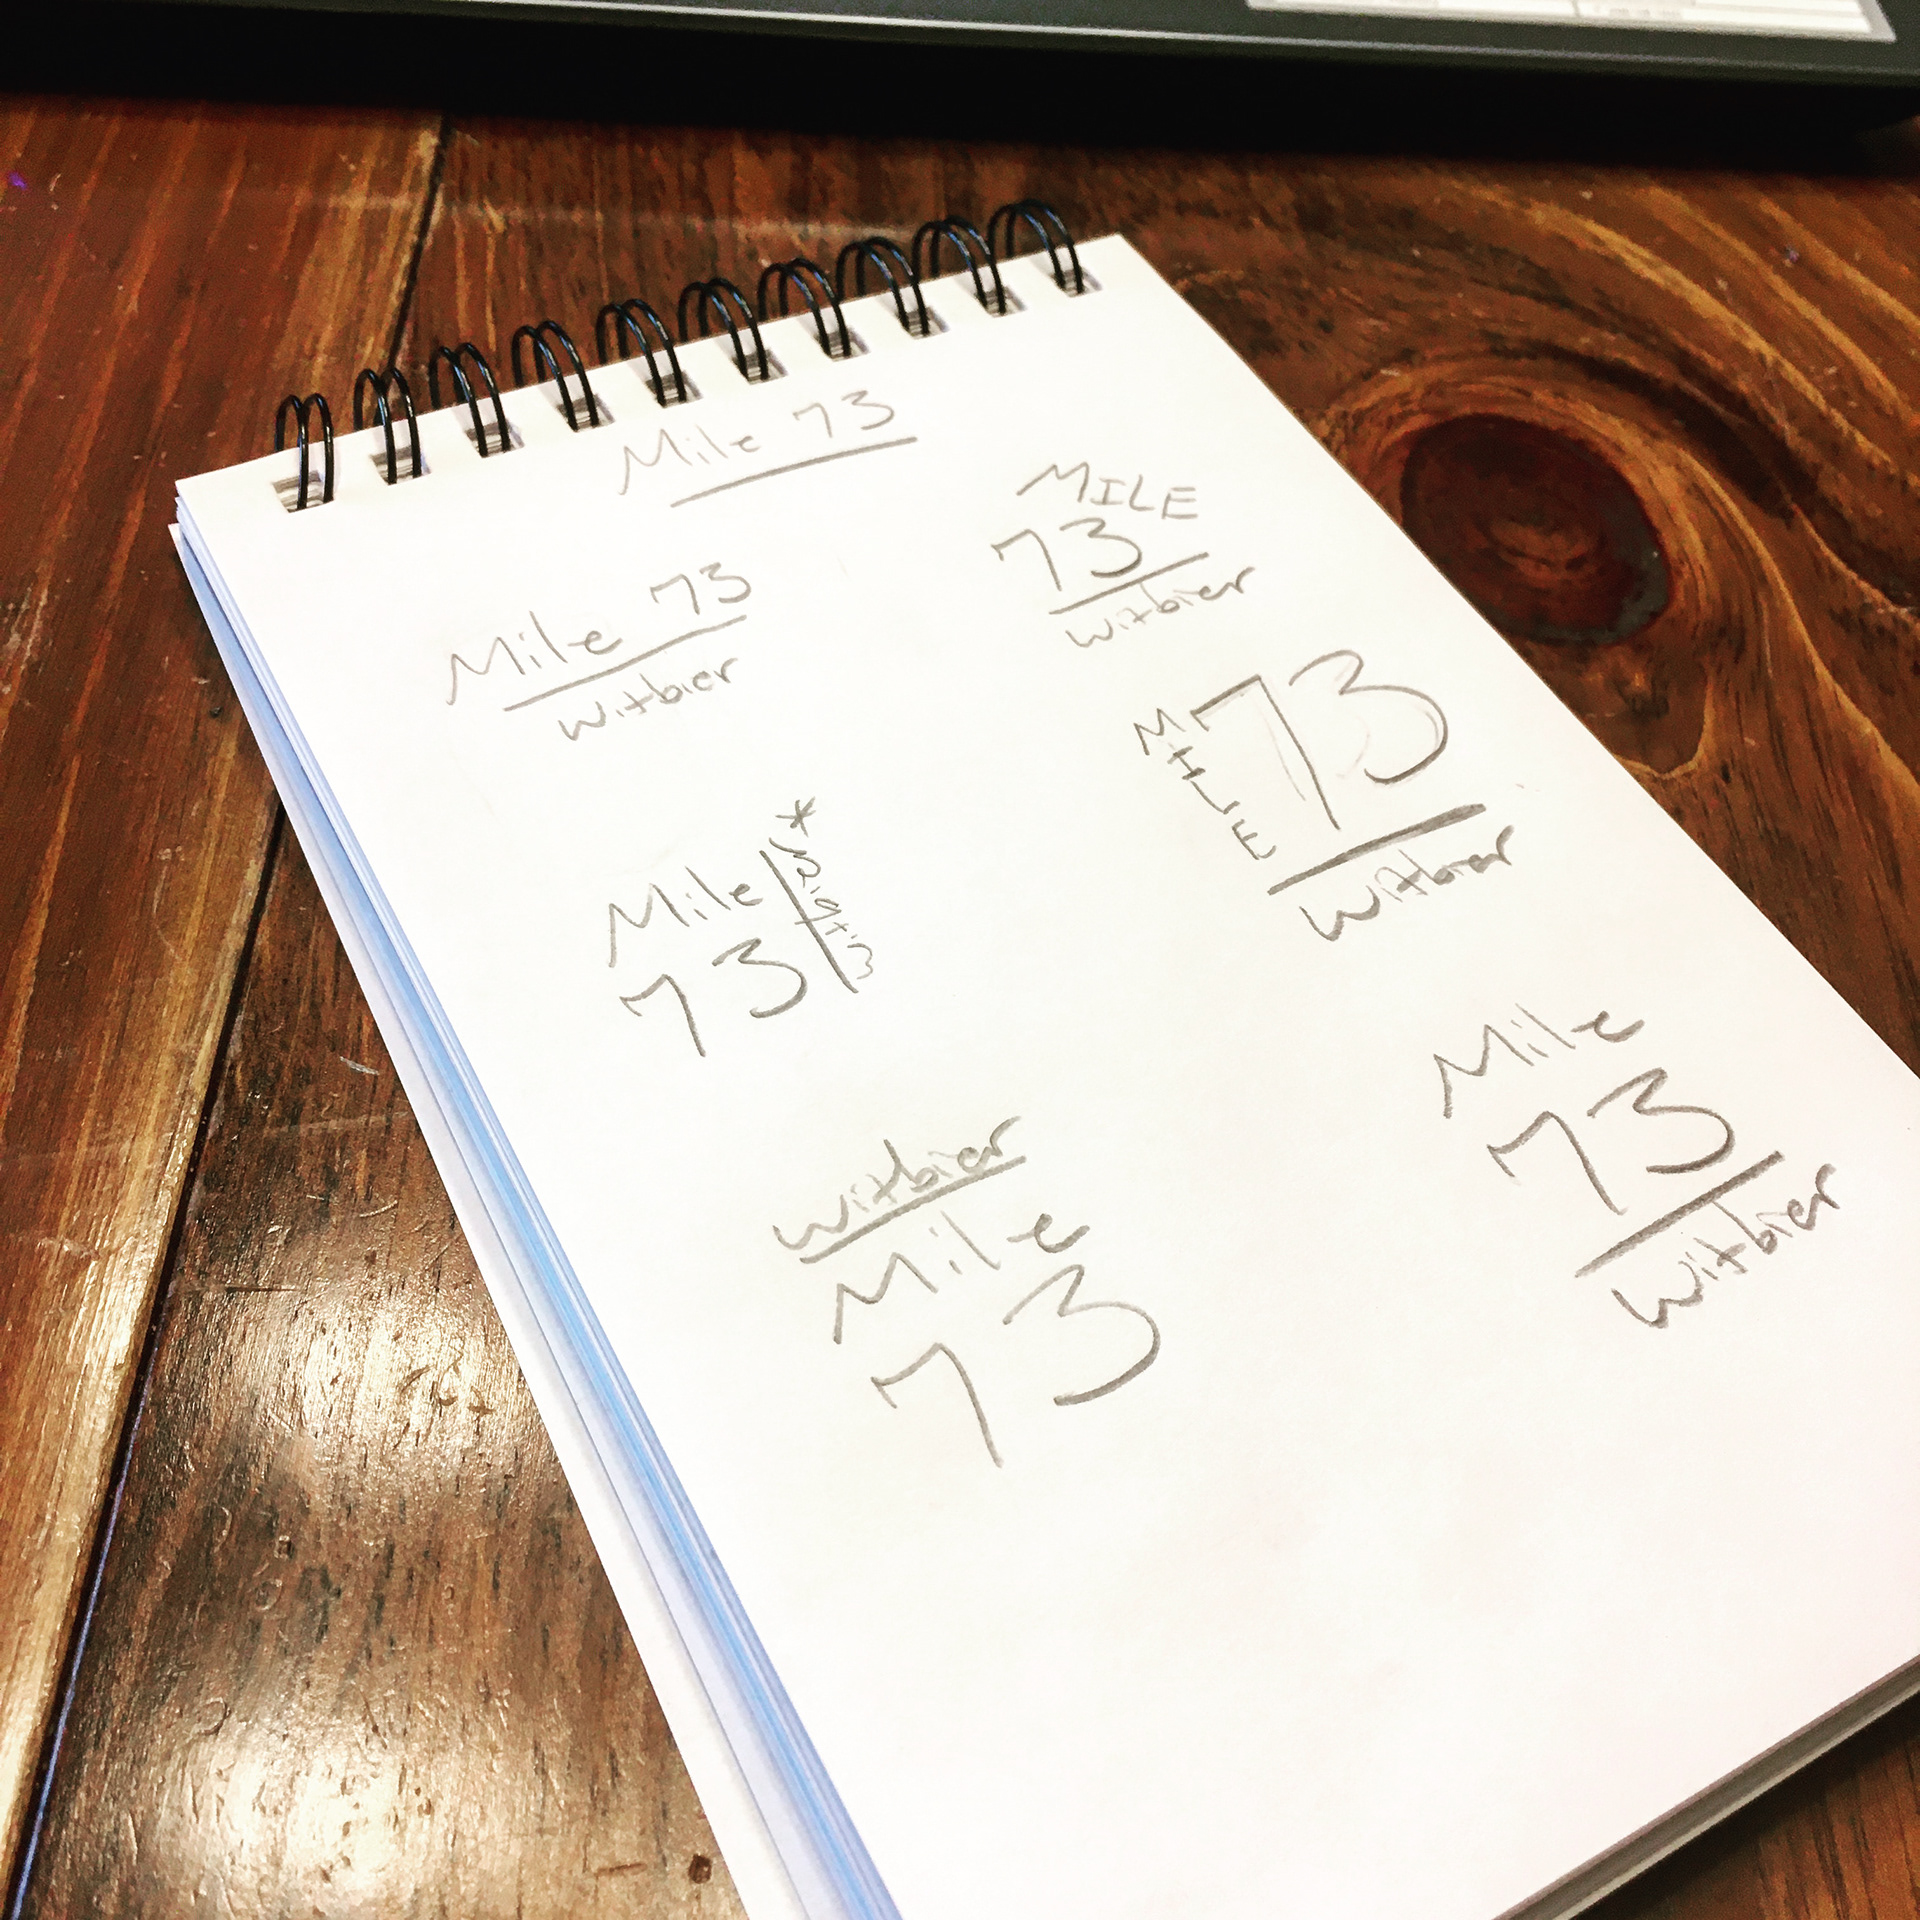 Mile 73
Mile 73
Witbier
MILE
73
Witbier
MILE
73
Witbier
Mile
73
Witbier
*
Witbier
Mile
73
Mile
73
Witbier